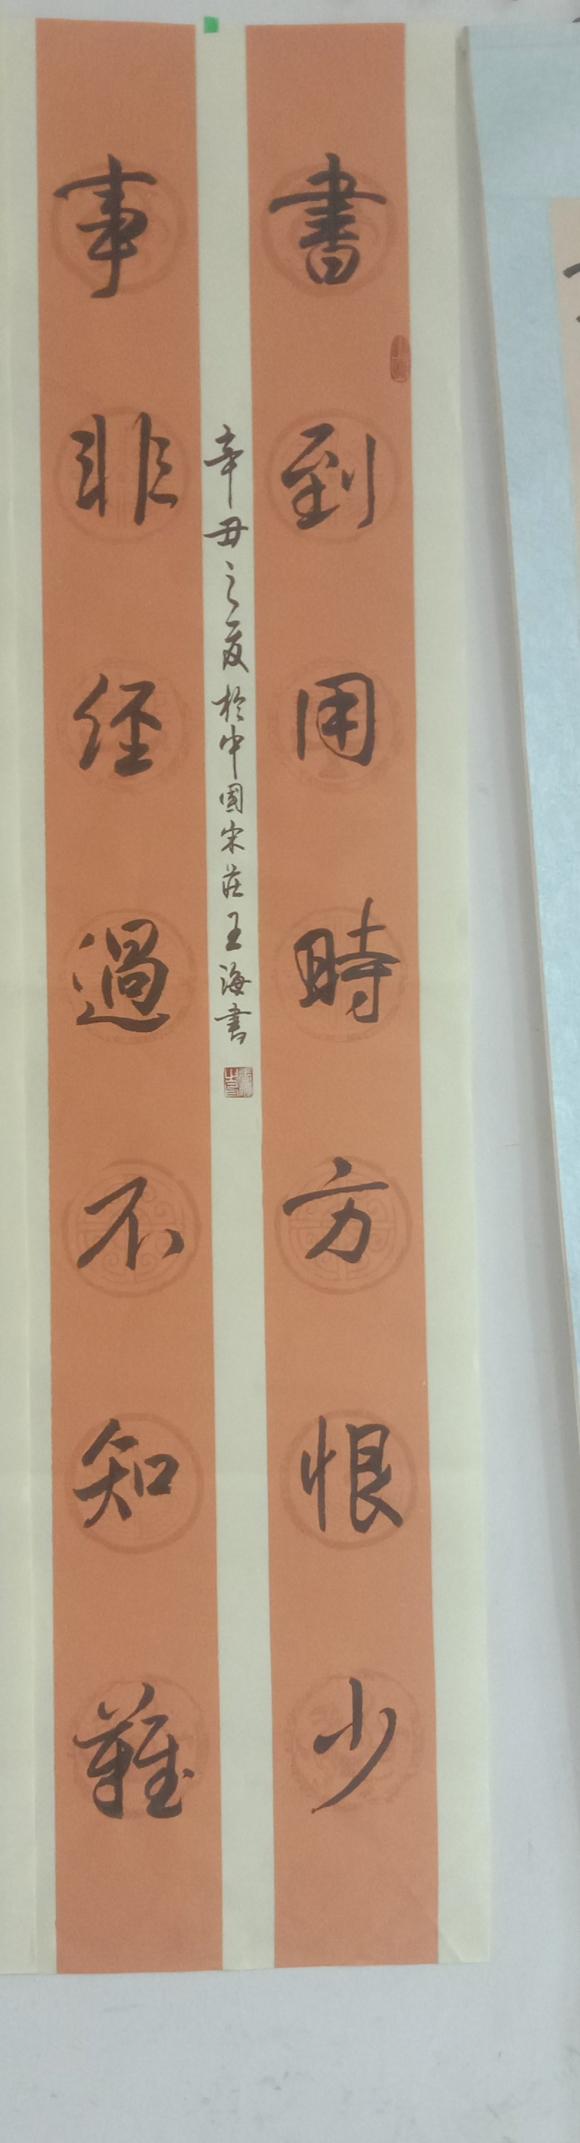 書到用時方恨少
事非經過不知難
辛丑之夏於中國宋莊王海書